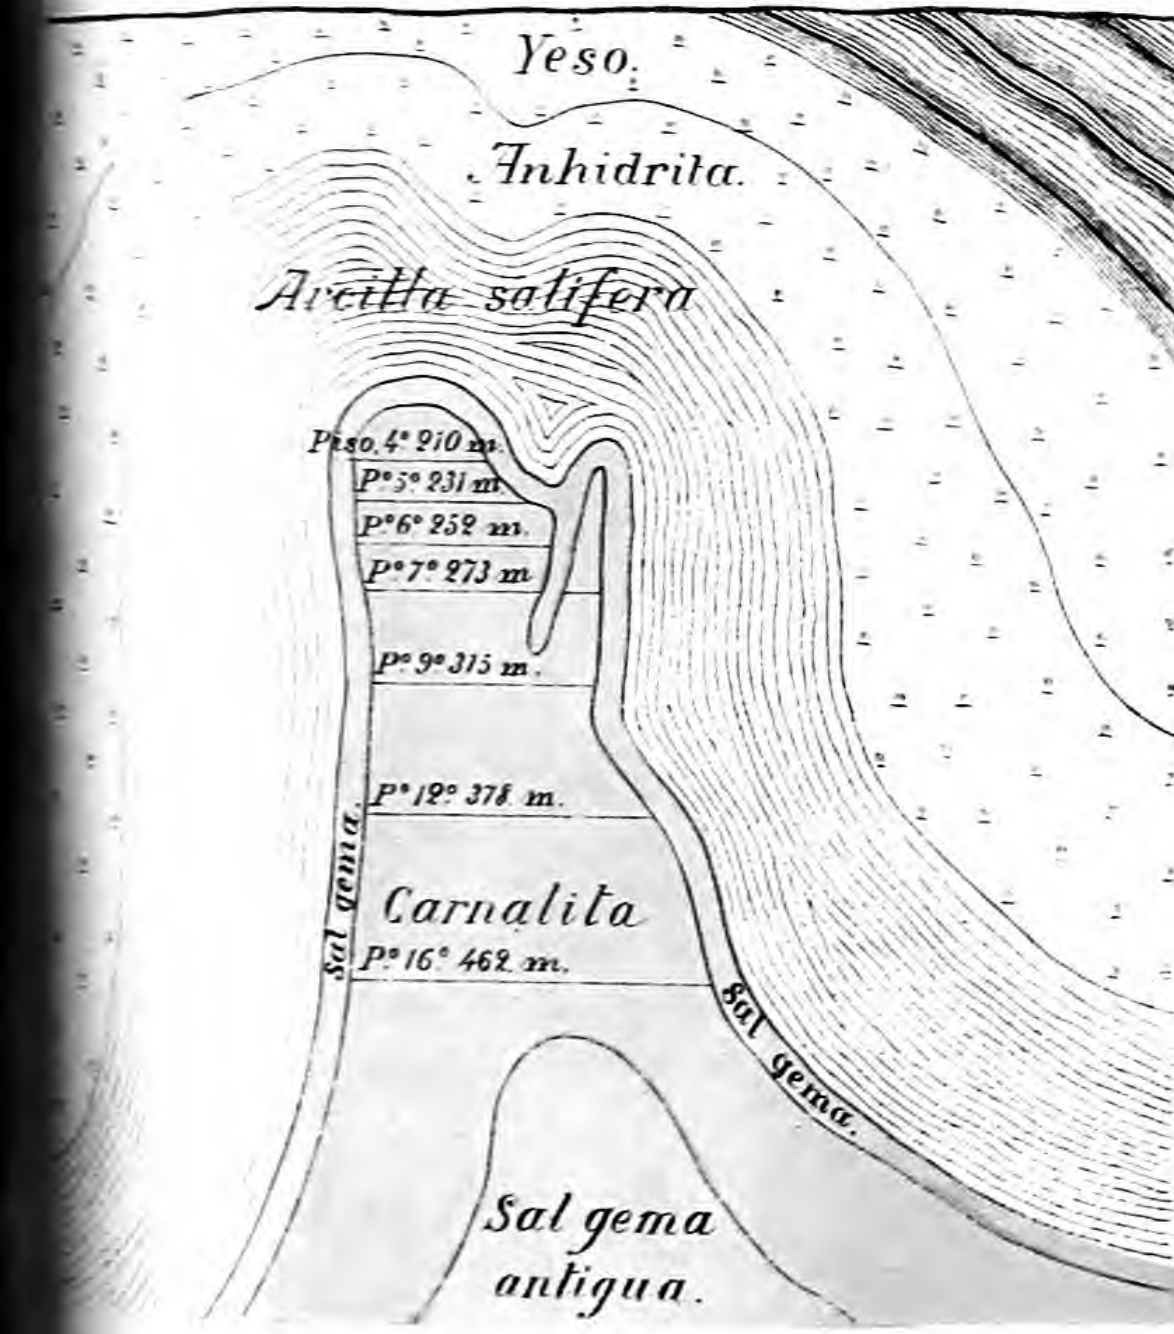 Yeso.
Anhidrita.
Arcilla salifera
Piso. 4º 210 m.
Pº 5º 231 m.
Pº 6º 252 m.
Pº 7º 273 m
Pº 9º 315 m.
Pº 12º 378 m.
Sal gema.
Carnalita
Pº 16º 462 m.
Sal gema.
Sal gema
antigua.